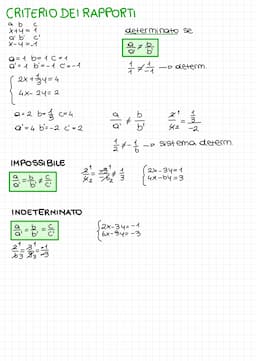 CRITERIO DEI RAPPORTI
a b c
x+y=1
a' b' c'
x-y=1
determinato se
a/a' ≠ b/b'
a=1 b=1 c=1
a'=1 b'=-1 c'=-1
1/1 ≠ 1/-1 → determ.
{ 2x+1/3y=4
4x-2y=2
a=2 b=1/3 c=4
a'=4 b'=-2 c'=2
a/a' ≠ b/b'
1/2 ≠ -1/6 → sistema determ.
IMPOSSIBILE
a/a' = b/b' ≠ c/c'
{ 2x-3y=1
4x-6y=3
INDETERMINATO
a/a' = b/b' = c/c'
{ 2x-3y=-1
6x-9y=-3